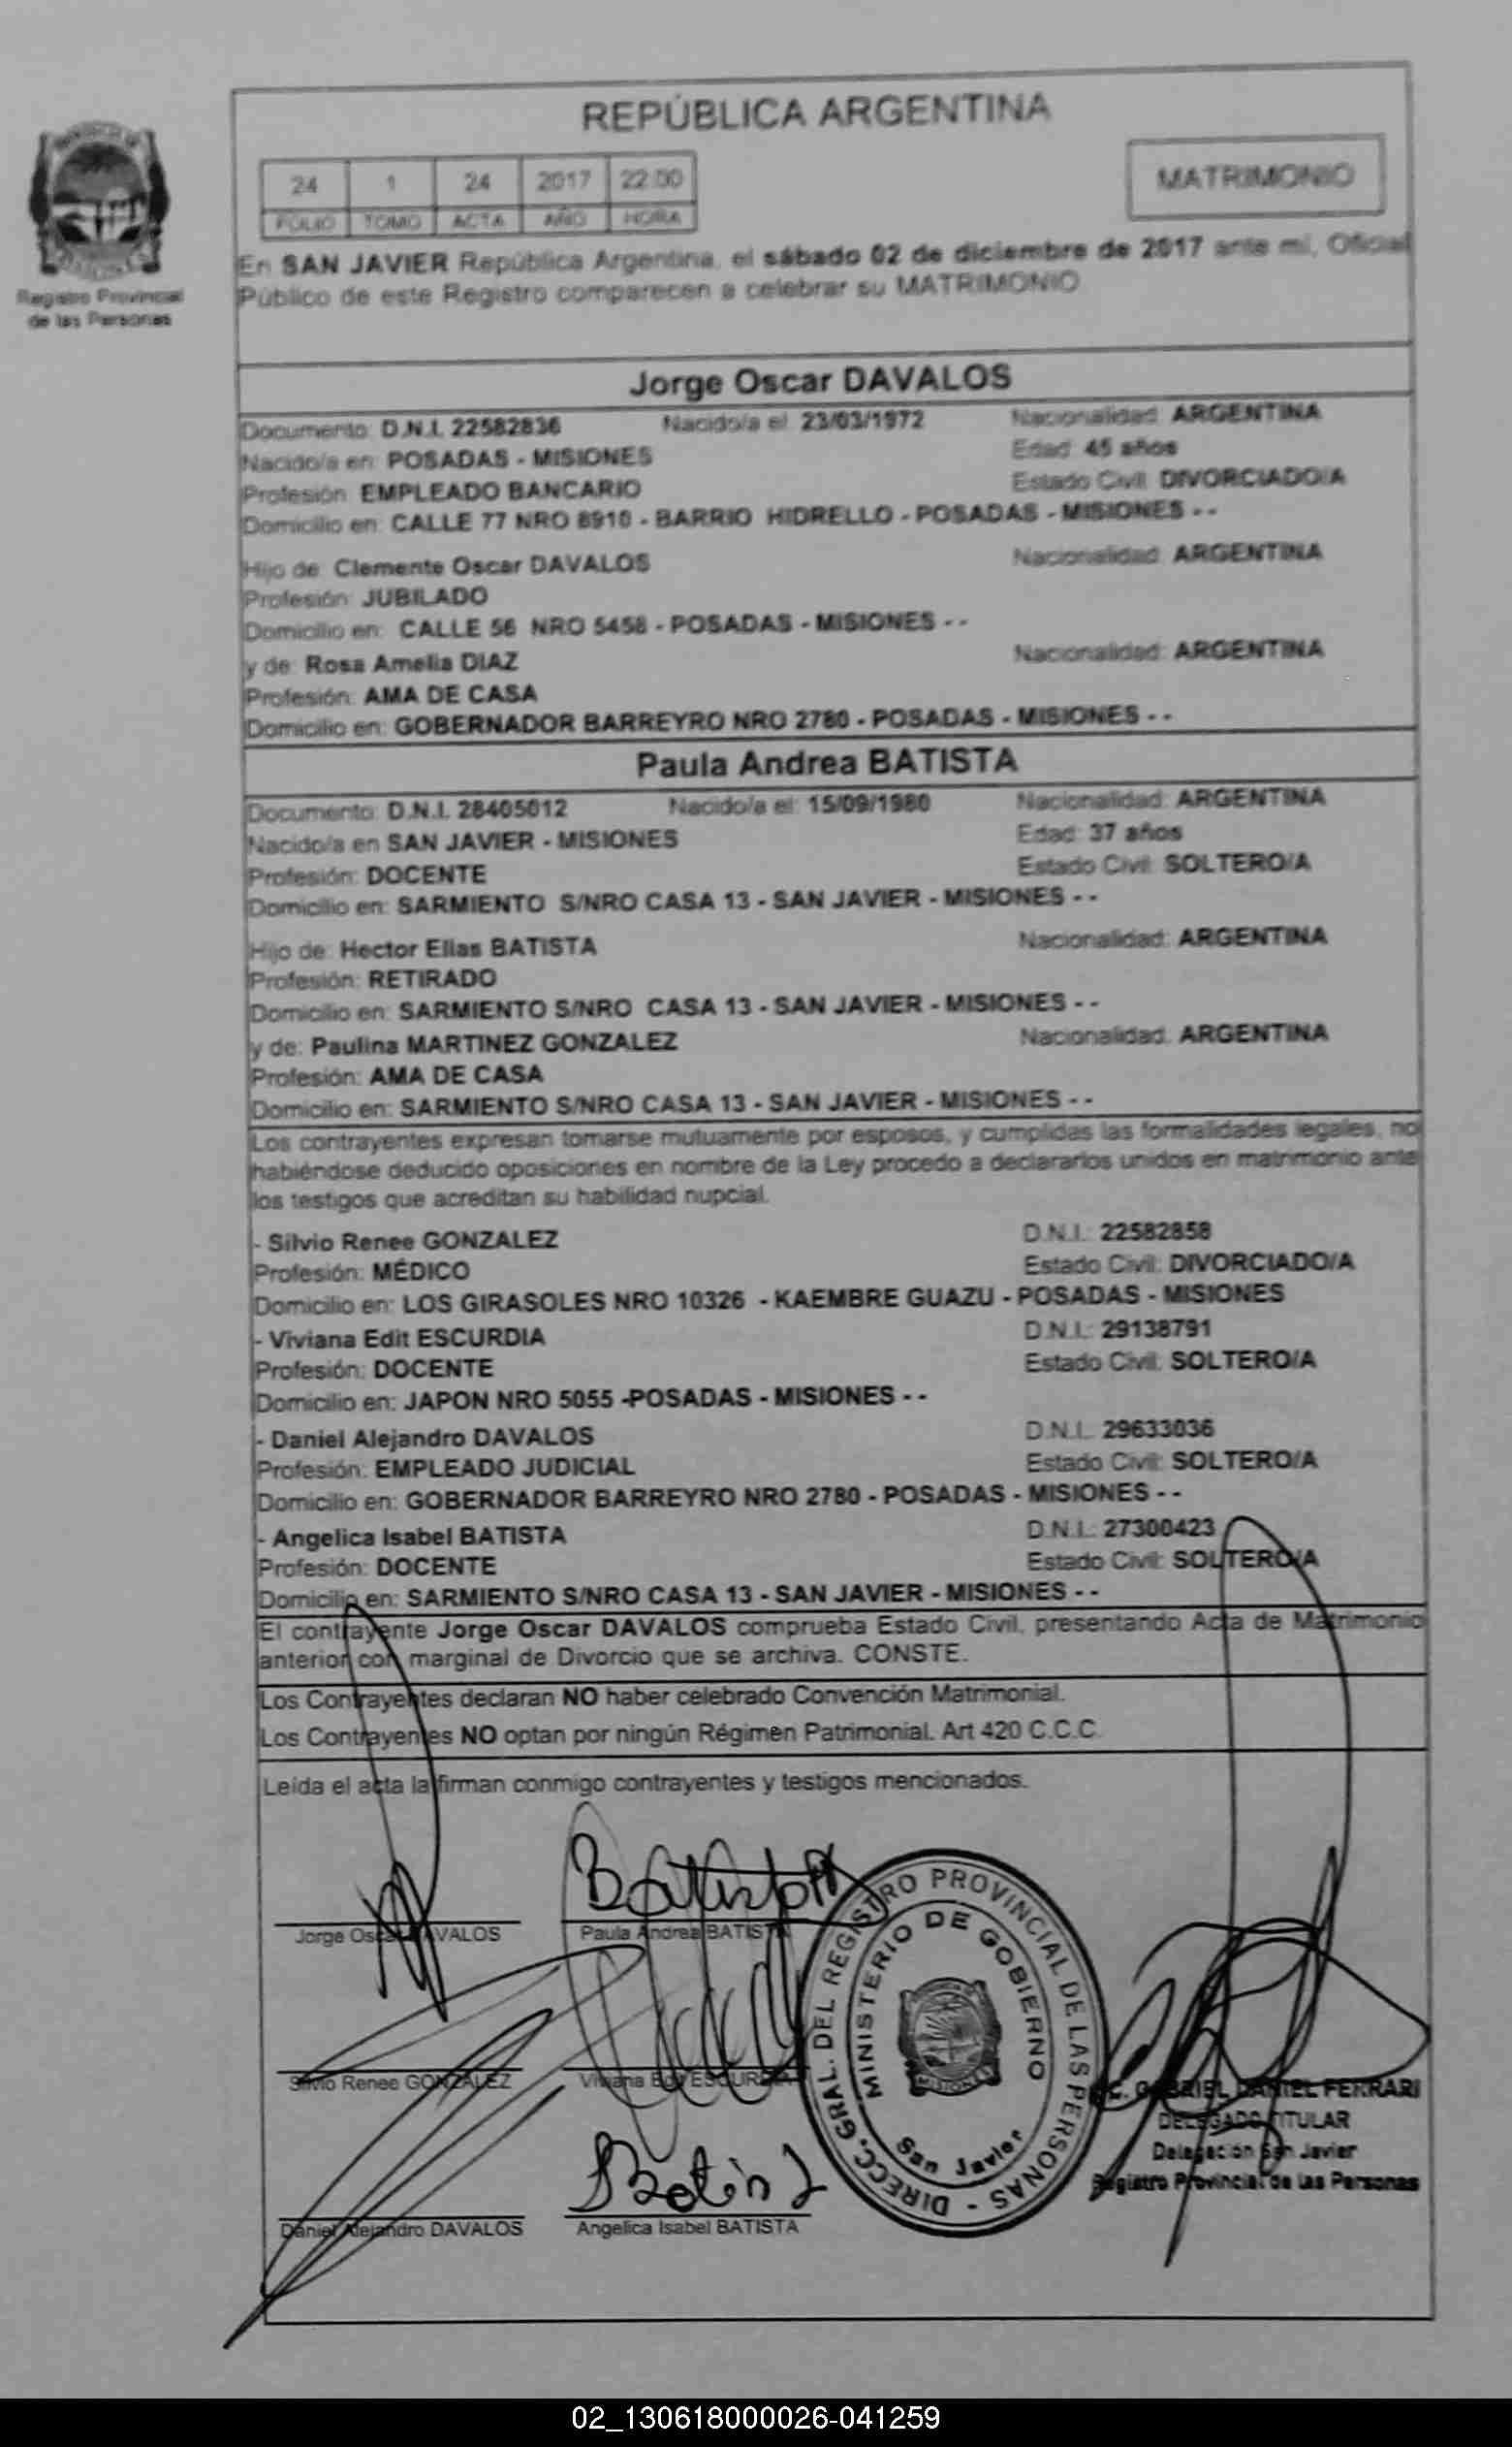 REPÚBLICA ARGENTINA
24 1 24 2017 22:00
FOLIO TOMO ACTA AÑO HORA
MATRIMONIO
Registro Provincial
de las Personas
En SAN JAVIER República Argentina, el sábado 02 de diciembre de 2017 ante mi, Oficial
Público de este Registro comparecen a celebrar su MATRIMONIO
Jorge Oscar DAVALOS
Documento: D.N.I. 22582836 Nacido/a el: 23/03/1972 Nacionalidad: ARGENTINA
Nacido/a en: POSADAS - MISIONES Edad: 45 años
Profesión: EMPLEADO BANCARIO Estado Civil: DIVORCIADO/A
Domicilio en: CALLE 77 NRO 8910 - BARRIO HIDRELLO - POSADAS - MISIONES - -
Hijo de: Clemente Oscar DAVALOS Nacionalidad: ARGENTINA
Profesión: JUBILADO
Domicilio en: CALLE 56 NRO 5458 - POSADAS - MISIONES - -
y de: Rosa Amelia DIAZ Nacionalidad: ARGENTINA
Profesión: AMA DE CASA
Domicilio en: GOBERNADOR BARREYRO NRO 2780 - POSADAS - MISIONES - -
Paula Andrea BATISTA
Documento: D.N.I. 28405012 Nacido/a el: 15/09/1980 Nacionalidad: ARGENTINA
Nacido/a en SAN JAVIER - MISIONES Edad: 37 años
Profesión: DOCENTE Estado Civil: SOLTERO/A
Domicilio en: SARMIENTO S/NRO CASA 13 - SAN JAVIER - MISIONES - -
Hijo de: Hector Elias BATISTA Nacionalidad: ARGENTINA
Profesión: RETIRADO
Domicilio en: SARMIENTO S/NRO CASA 13 - SAN JAVIER - MISIONES - -
y de: Paulina MARTINEZ GONZALEZ Nacionalidad: ARGENTINA
Profesión: AMA DE CASA
Domicilio en: SARMIENTO S/NRO CASA 13 - SAN JAVIER - MISIONES - -
Los contrayentes expresan tomarse mutuamente por esposos, y cumplidas las formalidades legales, no
habiéndose deducido oposiciones en nombre de la Ley procedo a declararlos unidos en matrimonio ante
los testigos que acreditan su habilidad nupcial.
- Silvio Renee GONZALEZ D.N.I.: 22582858
Profesión: MÉDICO Estado Civil: DIVORCIADO/A
Domicilio en: LOS GIRASOLES NRO 10326 - KAEMBRE GUAZU - POSADAS - MISIONES
- Viviana Edit ESCURDIA D.N.I.: 29138791
Profesión: DOCENTE Estado Civil: SOLTERO/A
Domicilio en: JAPON NRO 5055 -POSADAS - MISIONES - -
- Daniel Alejandro DAVALOS D.N.I.: 29633036
Profesión: EMPLEADO JUDICIAL Estado Civil: SOLTERO/A
Domicilio en: GOBERNADOR BARREYRO NRO 2780 - POSADAS - MISIONES - -
- Angelica Isabel BATISTA D.N.I.: 27300423
Profesión: DOCENTE Estado Civil: SOLTERO/A
Domicilio en: SARMIENTO S/NRO CASA 13 - SAN JAVIER - MISIONES - -
El contrayente Jorge Oscar DAVALOS comprueba Estado Civil, presentando Acta de Matrimonio
anterior con marginal de Divorcio que se archiva. CONSTE.
Los Contrayentes declaran NO haber celebrado Convención Matrimonial.
Los Contrayentes NO optan por ningún Régimen Patrimonial. Art 420 C.C.C.
Leída el acta la firman conmigo contrayentes y testigos mencionados.
Jorge Oscar DAVALOS Paula Andrea BATISTA
Silvio Renee GONZALEZ Viviana Edit ESCURDIA
Daniel Alejandro DAVALOS Angelica Isabel BATISTA
DIRECC. GRAL. DEL REGISTRO PROVINCIAL DE LAS PERSONAS -
MINISTERIO DE GOBIERNO
MISIONES
San Javier
GABRIEL DANIEL FERRARI
DELEGADO TITULAR
Delegación San Javier
Registro Provincial de las Personas
02_130618000026-041259